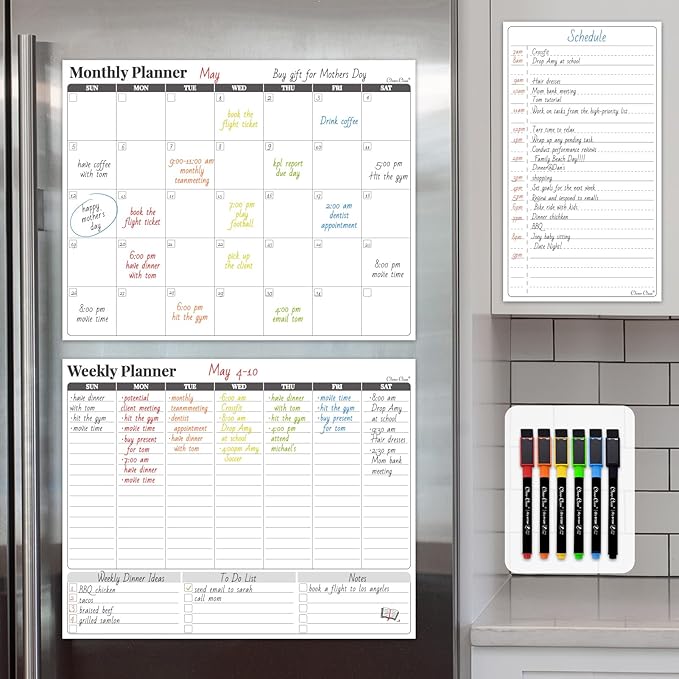 Monthly Planner May Buy gift for Mothers Day
SUN MON TUE WED THU FRI SAT
book the
flight ticket
Drink coffee
have coffee
with tom
9:00-11:00 am
monthly
teammeeting
kpl report
due day
5:00 pm
Hit the gym
happy
mother's
day
book the
flight ticket
7:00 pm
play
football
2:00 am
dentist
appointment
6:00 pm
have dinner
with tom
pick up
the client
8:00 pm
movie time
8:00 pm
movie time
6:00 pm
hit the gym
4:00 pm
email tom
Weekly Planner May 4-10
SUN MON TUE WED THU FRI SAT
·have dinner
with tom
·hit the gym
·movie time
·potential
client meeting
·hit the gym
·movie time
·buy present
for tom
·7:00 am
have dinner
·movie time
·monthly
teammeeting
·dentist
appointment
·have dinner
with tom
·6:00 am
Crosfit
·8:00 am
Drop Amy
at school
·4:00pm Amy
Soccer
·have dinner
with tom
·hit the gym
·4:00 pm
attend
michael's
·movie time
·hit the gym
·buy present
for tom
·8:00 am
Drop Amy
at school
·9:30 am
Hair dresses
·2:30 pm
Mom bank
meeting
Weekly Dinner Ideas
1 BBQ chicken
2 tacos
3 braised beef
4 grilled samlon
To Do List
send email to sarah
call mom
Notes
book a flight to los angeles
Schedule
7am Crosfit
8am Drop Amy at school
9am Hair dresses
10am Mom bank meeting
Tom tutorial
11am Work on tasks from the high-priority list
12pm Take time to relax
1pm Wrap up any pending task
Conduct performance reviews
2pm Family Beach Day!!!!
Dinner@Dan's
3pm shopping
4pm Set goals for the next week
5pm and respond to emails
6pm Bike ride with kids
7pm Dinner chickken
BBQ
8pm Joey baby sitting
Date Night!
9pm